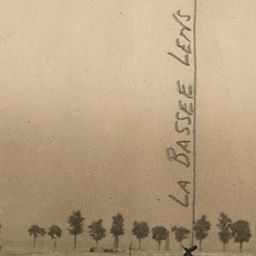 LA BASSEE LENS